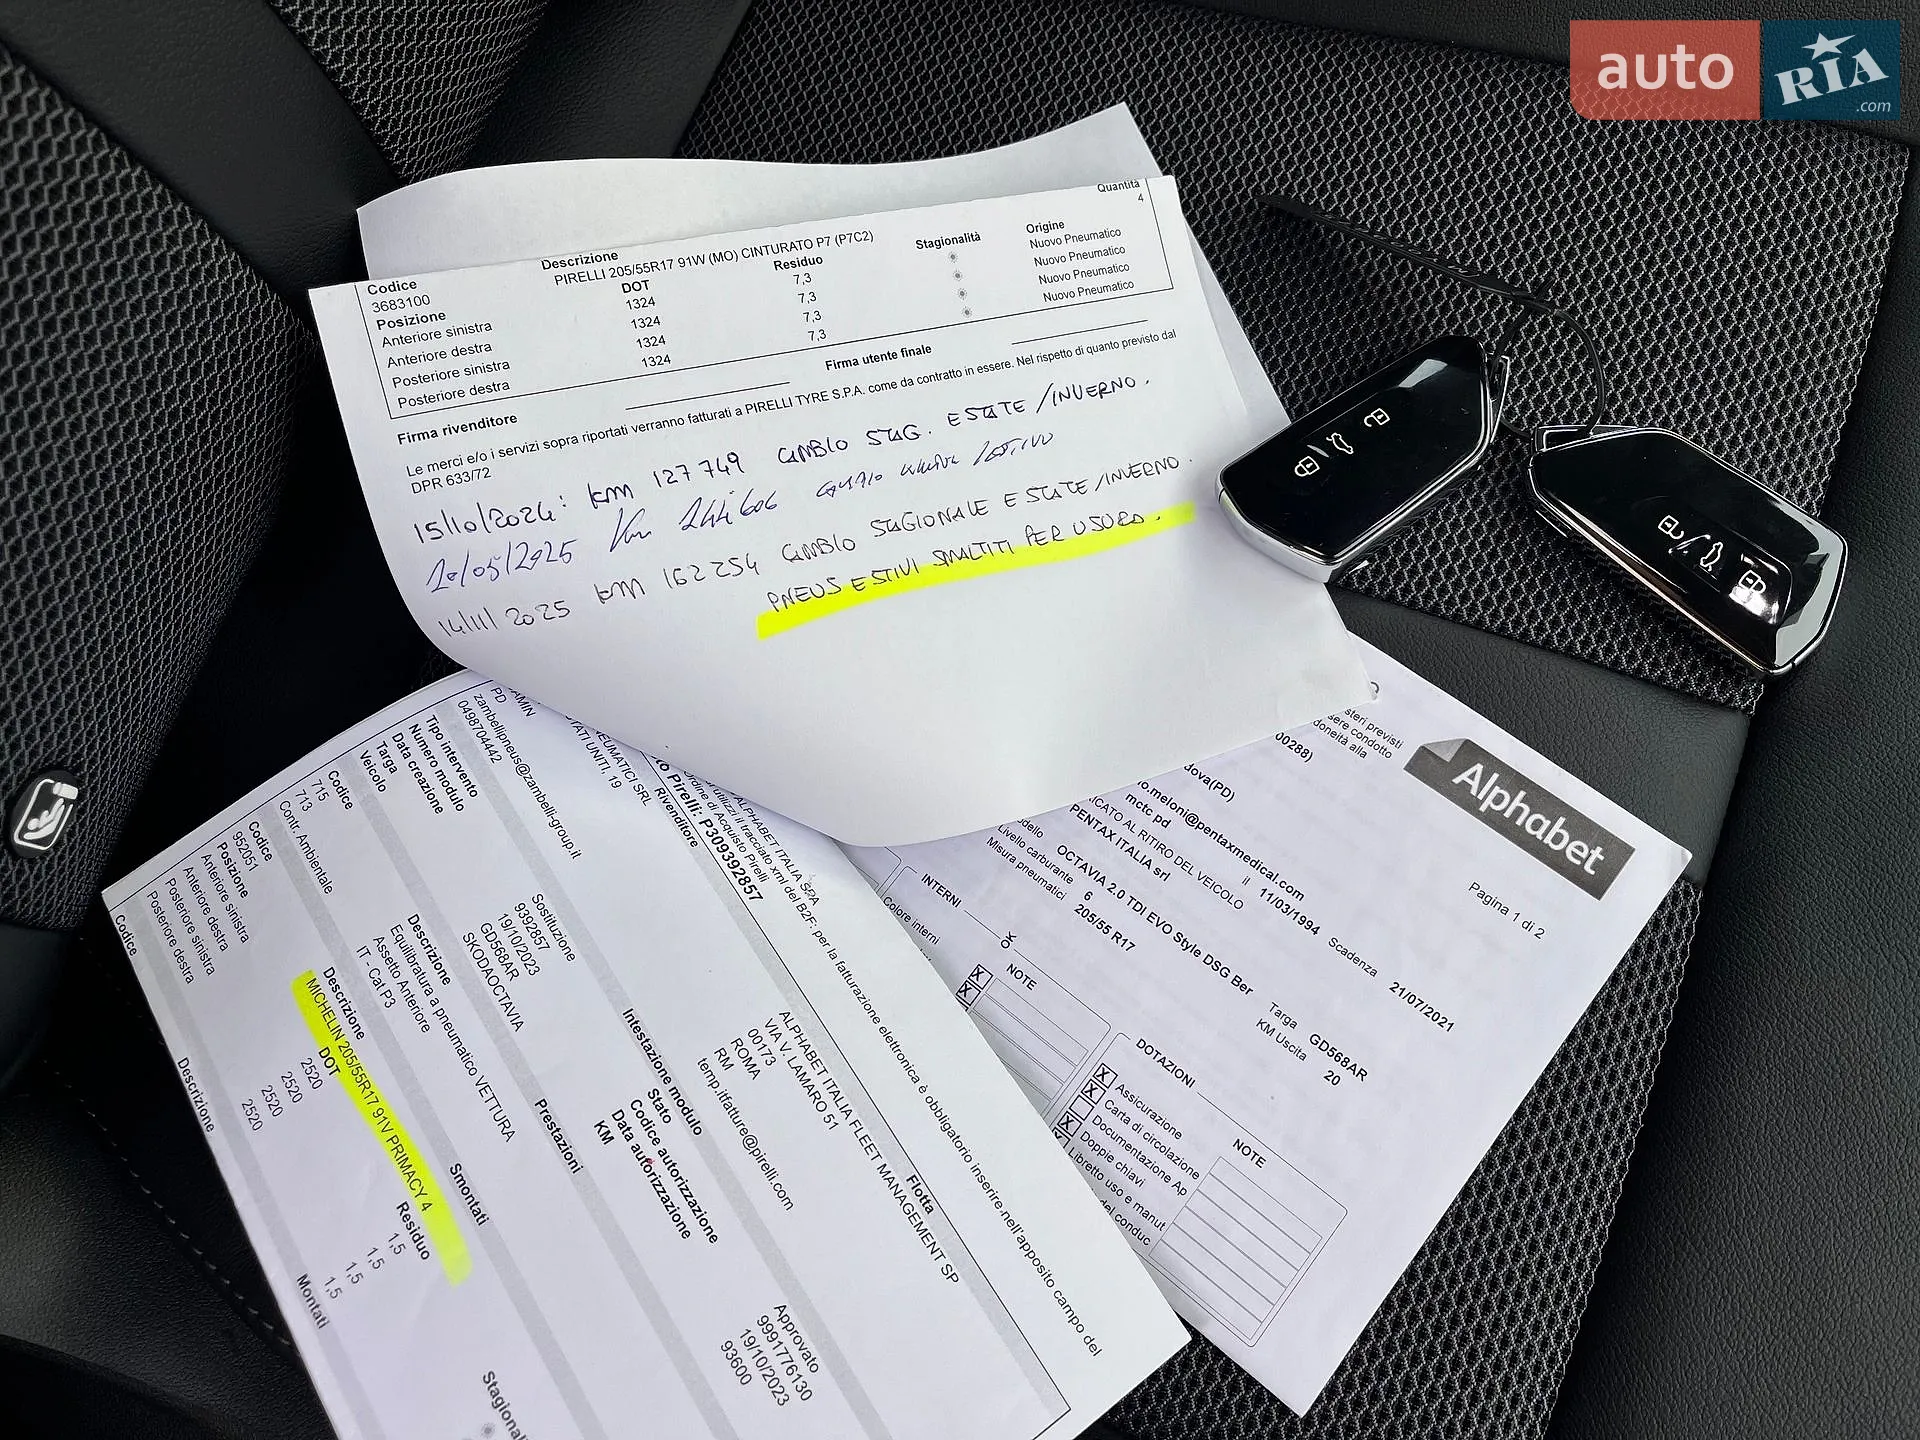 auto
RIA
.com
Quantità
4
Descrizione
PIRELLI 205/55R17 91W (MO) CINTURATO P7 (P7C2)
Stagionalità
Origine
Codice
3683100
DOT
Residuo
Nuovo Pneumatico
Posizione
1324
7,3
Nuovo Pneumatico
Anteriore sinistra
1324
7,3
Nuovo Pneumatico
Anteriore destra
1324
7,3
Nuovo Pneumatico
Posteriore sinistra
1324
7,3
Posteriore destra
Firma rivenditore
Firma utente finale
Le merci e/o i servizi sopra riportati verranno fatturati a PIRELLI TYRE S.P.A. come da contratto in essere. Nel rispetto di quanto previsto dal
DPR 633/72
15/10/2024: KM 127749 CAMBIO STAG. ESTATE/INVERNO.
KM
14/11/2025 KM 162254 CAMBIO STAGIONALE ESTATE/INVERNO.
PNEUS ESTIVI SMALTITI PER USURA.
ALPHABET ITALIA SPA
to Pirelli: P309392857
Rivenditore
STATI UNITI, 19
PD
zambellipneus@zambelli-group.it
0498704442
Tipo intervento
Sostituzione
Numero modulo
9392857
Data creazione
19/10/2023
Targa
GD568AR
Veicolo
SKODAOCTAVIA
Flotta
ALPHABET ITALIA FLEET MANAGEMENT SP
VIA V. LAMARO 51
00173
ROMA
RM
temp.itfatture@pirelli.com
Intestazione modulo
Stato
Approvato
Codice autorizzazione
9991776130
Data autorizzazione
19/10/2023
KM
93600
Prestazioni
Codice
Descrizione
715
Equilibratura a pneumatico VETTURA
713
Assetto Anteriore
Contr. Ambientale
IT - Cat P3
Smontati
Codice
Descrizione
952051
MICHELIN 205/55R17 91V PRIMACY 4
Posizione
DOT
Residuo
Anteriore sinistra
2520
1,5
Anteriore destra
2520
1,5
Posteriore sinistra
2520
1,5
Posteriore destra
2520
1,5
Montati
Codice
Descrizione
Alphabet
Pagina 1 di 2
00288)
dova(PD)
o.meloni@pentaxmedical.com
mctc pd
il 11/03/1994 Scadenza 21/07/2021
ICATO AL RITIRO DEL VEICOLO
PENTAX ITALIA srl
OCTAVIA 2.0 TDI EVO Style DSG Ber
Targa GD568AR
Livello carburante 6
KM Uscita 20
Misura pneumatici 205/55 R17
INTERNI
OK
NOTE
Colore interni
X
X
DOTAZIONI
NOTE
X Assicurazione
X Carta di circolazione
Documentazione Ap
X Doppie chiavi
X Libretto uso e manut
del conduc